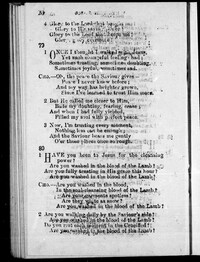 30
4 Glory to the Lord
Glory to
Glory to the Lord
Glory
79
ONCE I thought I walked with Jesus,
Yet such changeful feelings had;
Sometimes trusting, sometimes doubting,
Sometimes joyful, sometimes sad.
CHO.—Oh, the peace the Saviour gives
Peace I never knew before;
And my way has brighter grown,
Since I've learned to trust Him more.
2 But He called me closer to Him,
Bade my doubting, fearing, cease;
And when I had fully yielded,
Filled my soul with perfect peace.
3 Now, I'm trusting every moment,
Nothing less can be enough;
And the Saviour bears me gently
O'er those places once so rough.
80
1 HAVE you been to Jesus for the cleansing
power?
Are you washed in the blood of the Lamb?
Are you fully trusting in His grace this hour?
Are you washed in the blood of the Lamb?
CHO.—Are you washed in the blood,
In the soul-cleansing blood of the Lamb?
Are your garments spotless?
Are they white as snow?
Are you washed in the blood of the Lamb?
2 Are you walking daily by the Saviour's side?
Are you washed in the blood of the Lamb?
Do you rest each moment in the Crucified?
Are you washed in the blood of the Lamb?